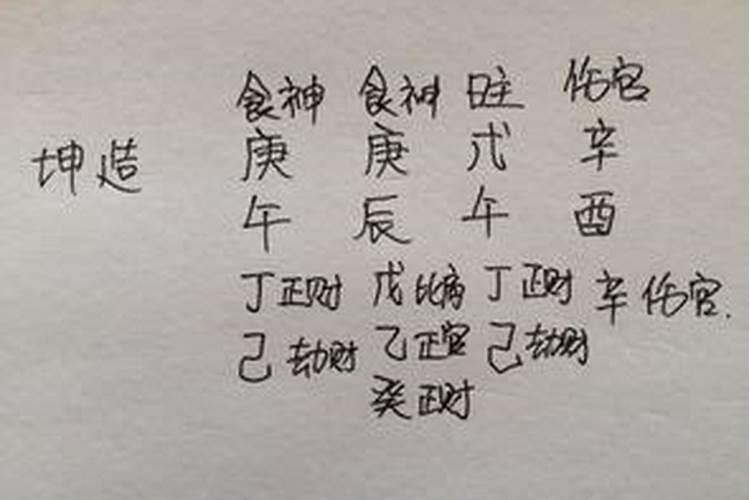 食神 食神 日主 伤官
坤造 庚 庚 戊 辛
午 辰 午 酉
丁正财 戊比肩 丁正财 辛伤官.
己劫财 乙正官 己劫财
癸正财